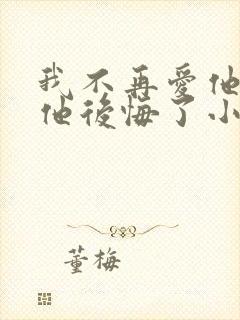 我不再愛他
他後悔了小
董梅